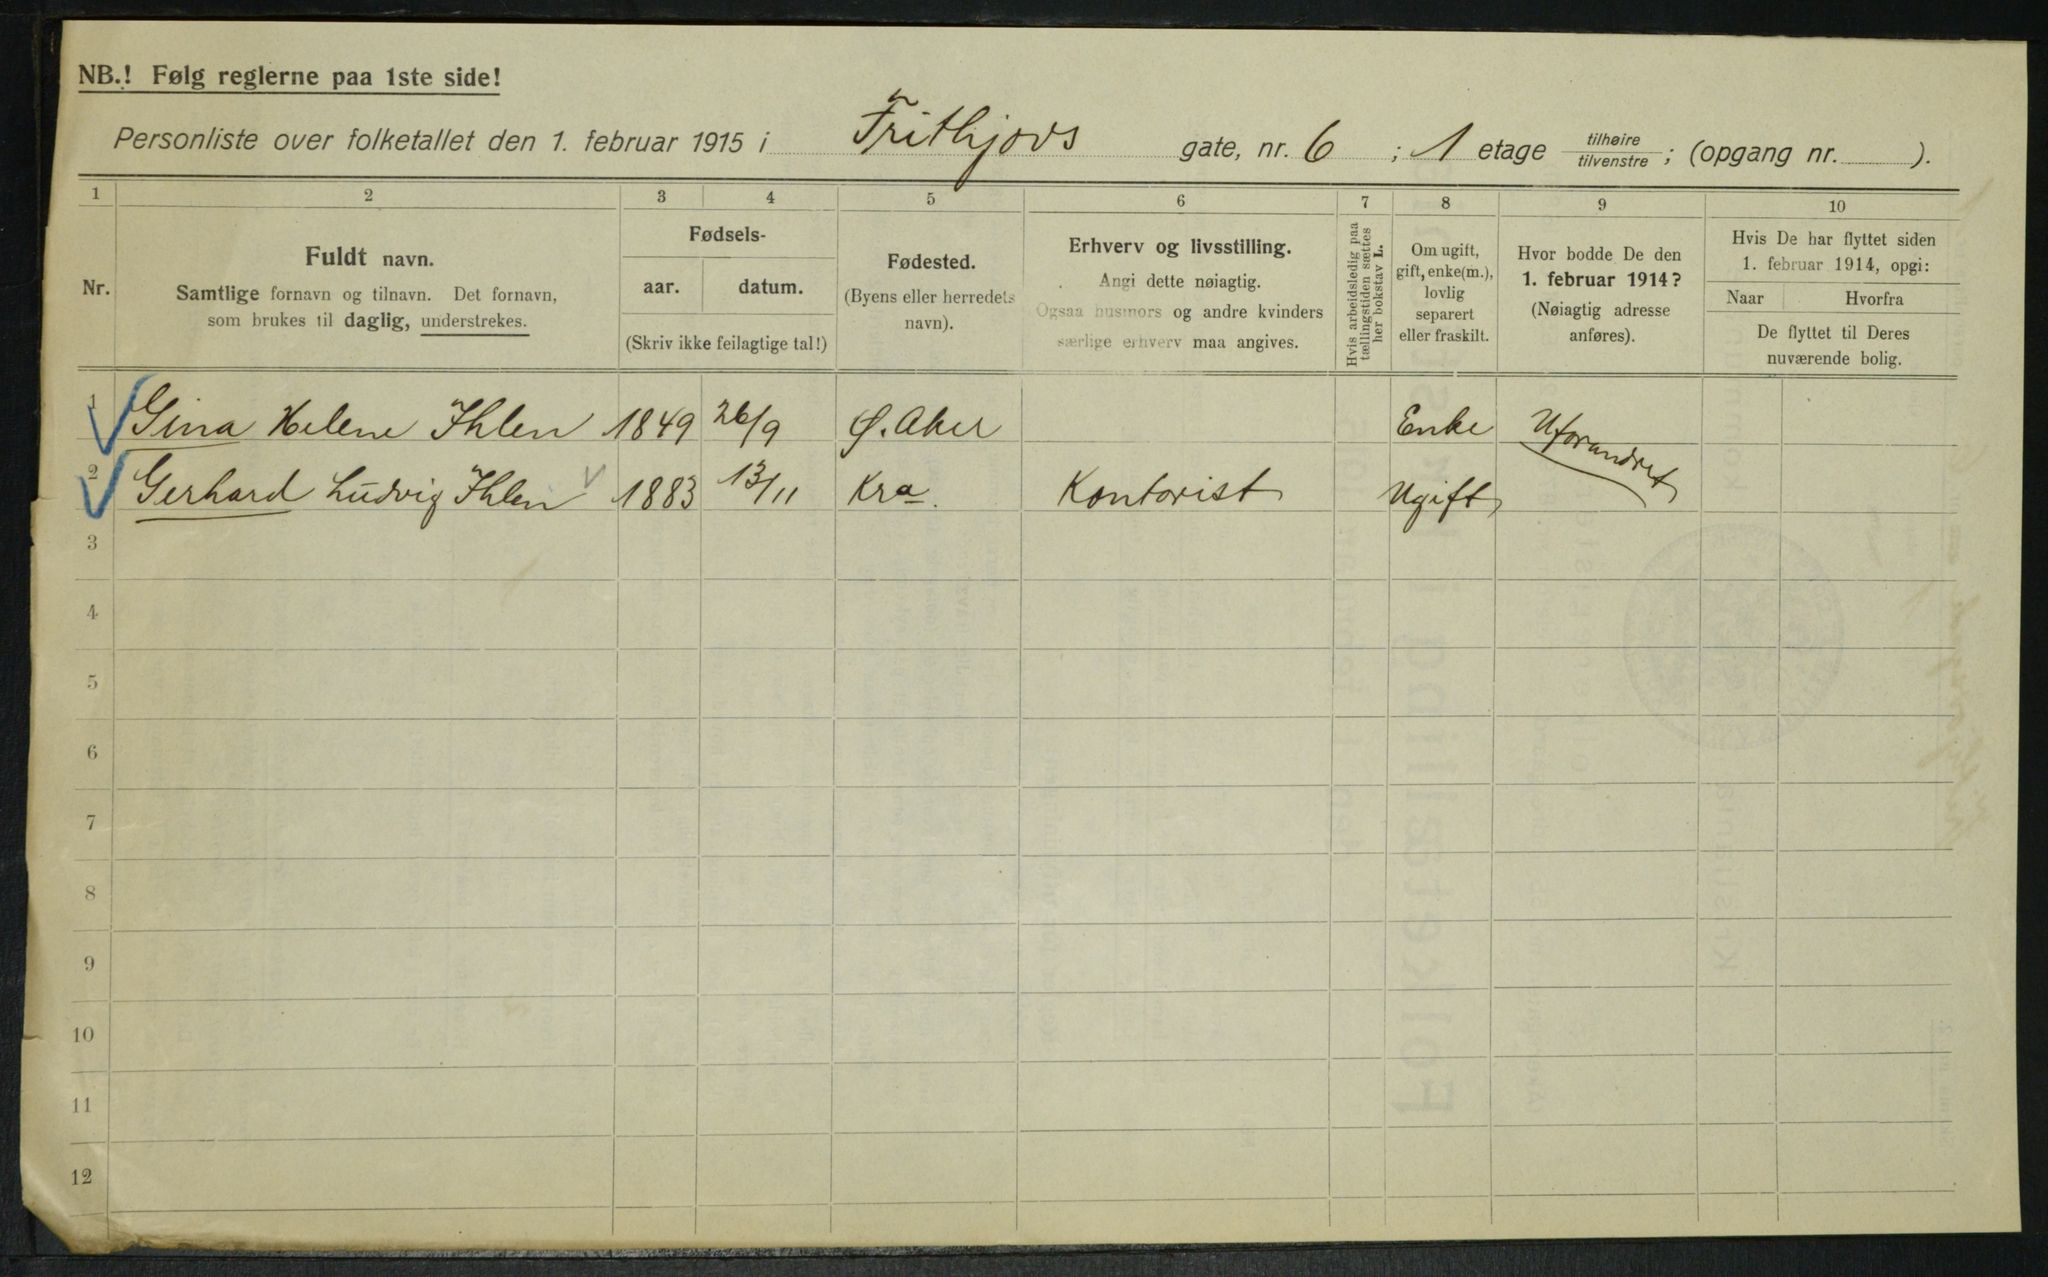 NB.! Følg reglerne paa 1ste side!
Personliste over folketallet den 1. februar 1915 i Frithjovs gate, nr. 6 ; 1 etage tilhøire tilvenstre ; (opgang nr. ).
1 2 3 4 5 6 7 8 9 10
Nr.
Fuldt navn.
Samtlige fornavn og tilnavn. Det fornavn,
som brukes til daglig, understrekes.
Fødsels-
aar. datum.
(Skriv ikke feilagtige tal!)
Fødested.
(Byens eller herredets
navn).
Erhverv og livsstilling.
Angi dette nøiagtig.
Ogsaa husmors og andre kvinders
særlige erhverv maa angives.
Hvis arbeidsledig paa
tællingstiden sættes
her bokstav L.
Om ugift,
gift, enke(m.),
lovlig
separert
eller fraskilt.
Hvor bodde De den
1. februar 1914?
(Nøiagtig adresse
anføres).
Hvis De har flyttet siden
1. februar 1914, opgi:
Naar Hvorfra
De flyttet til Deres
nuværende bolig.
1 Gina Helene Ihlen 1849 26/9 Ø. Aker Enke Uforandret
2 Gerhard Ludvig Ihlen 1883 13/11 Kra. Kontorist Ugift
3
4
5
6
7
8
9
10
11
12